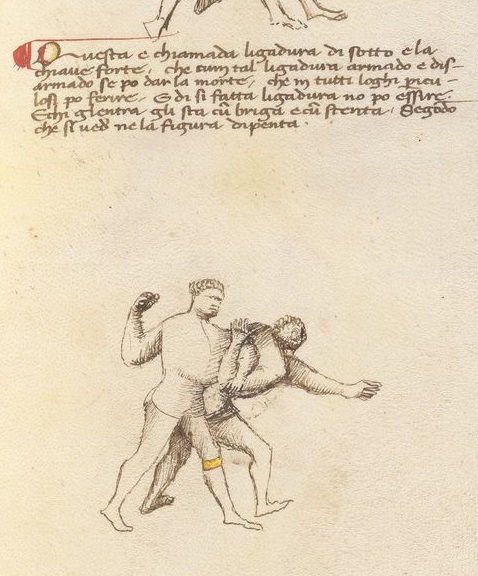 Questa e chiamada ligadura di sotto e la
chiave forte, che cum tal ligadura armado e dis-
armado se po dar la morte, che in tutti loghi pricu-
losi po ferire. E di si fatta ligadura no po essire.
E chi gl'entra gli sta cū briga e cū stenta. Segōdo
che si vedi ne la figura dipenta.